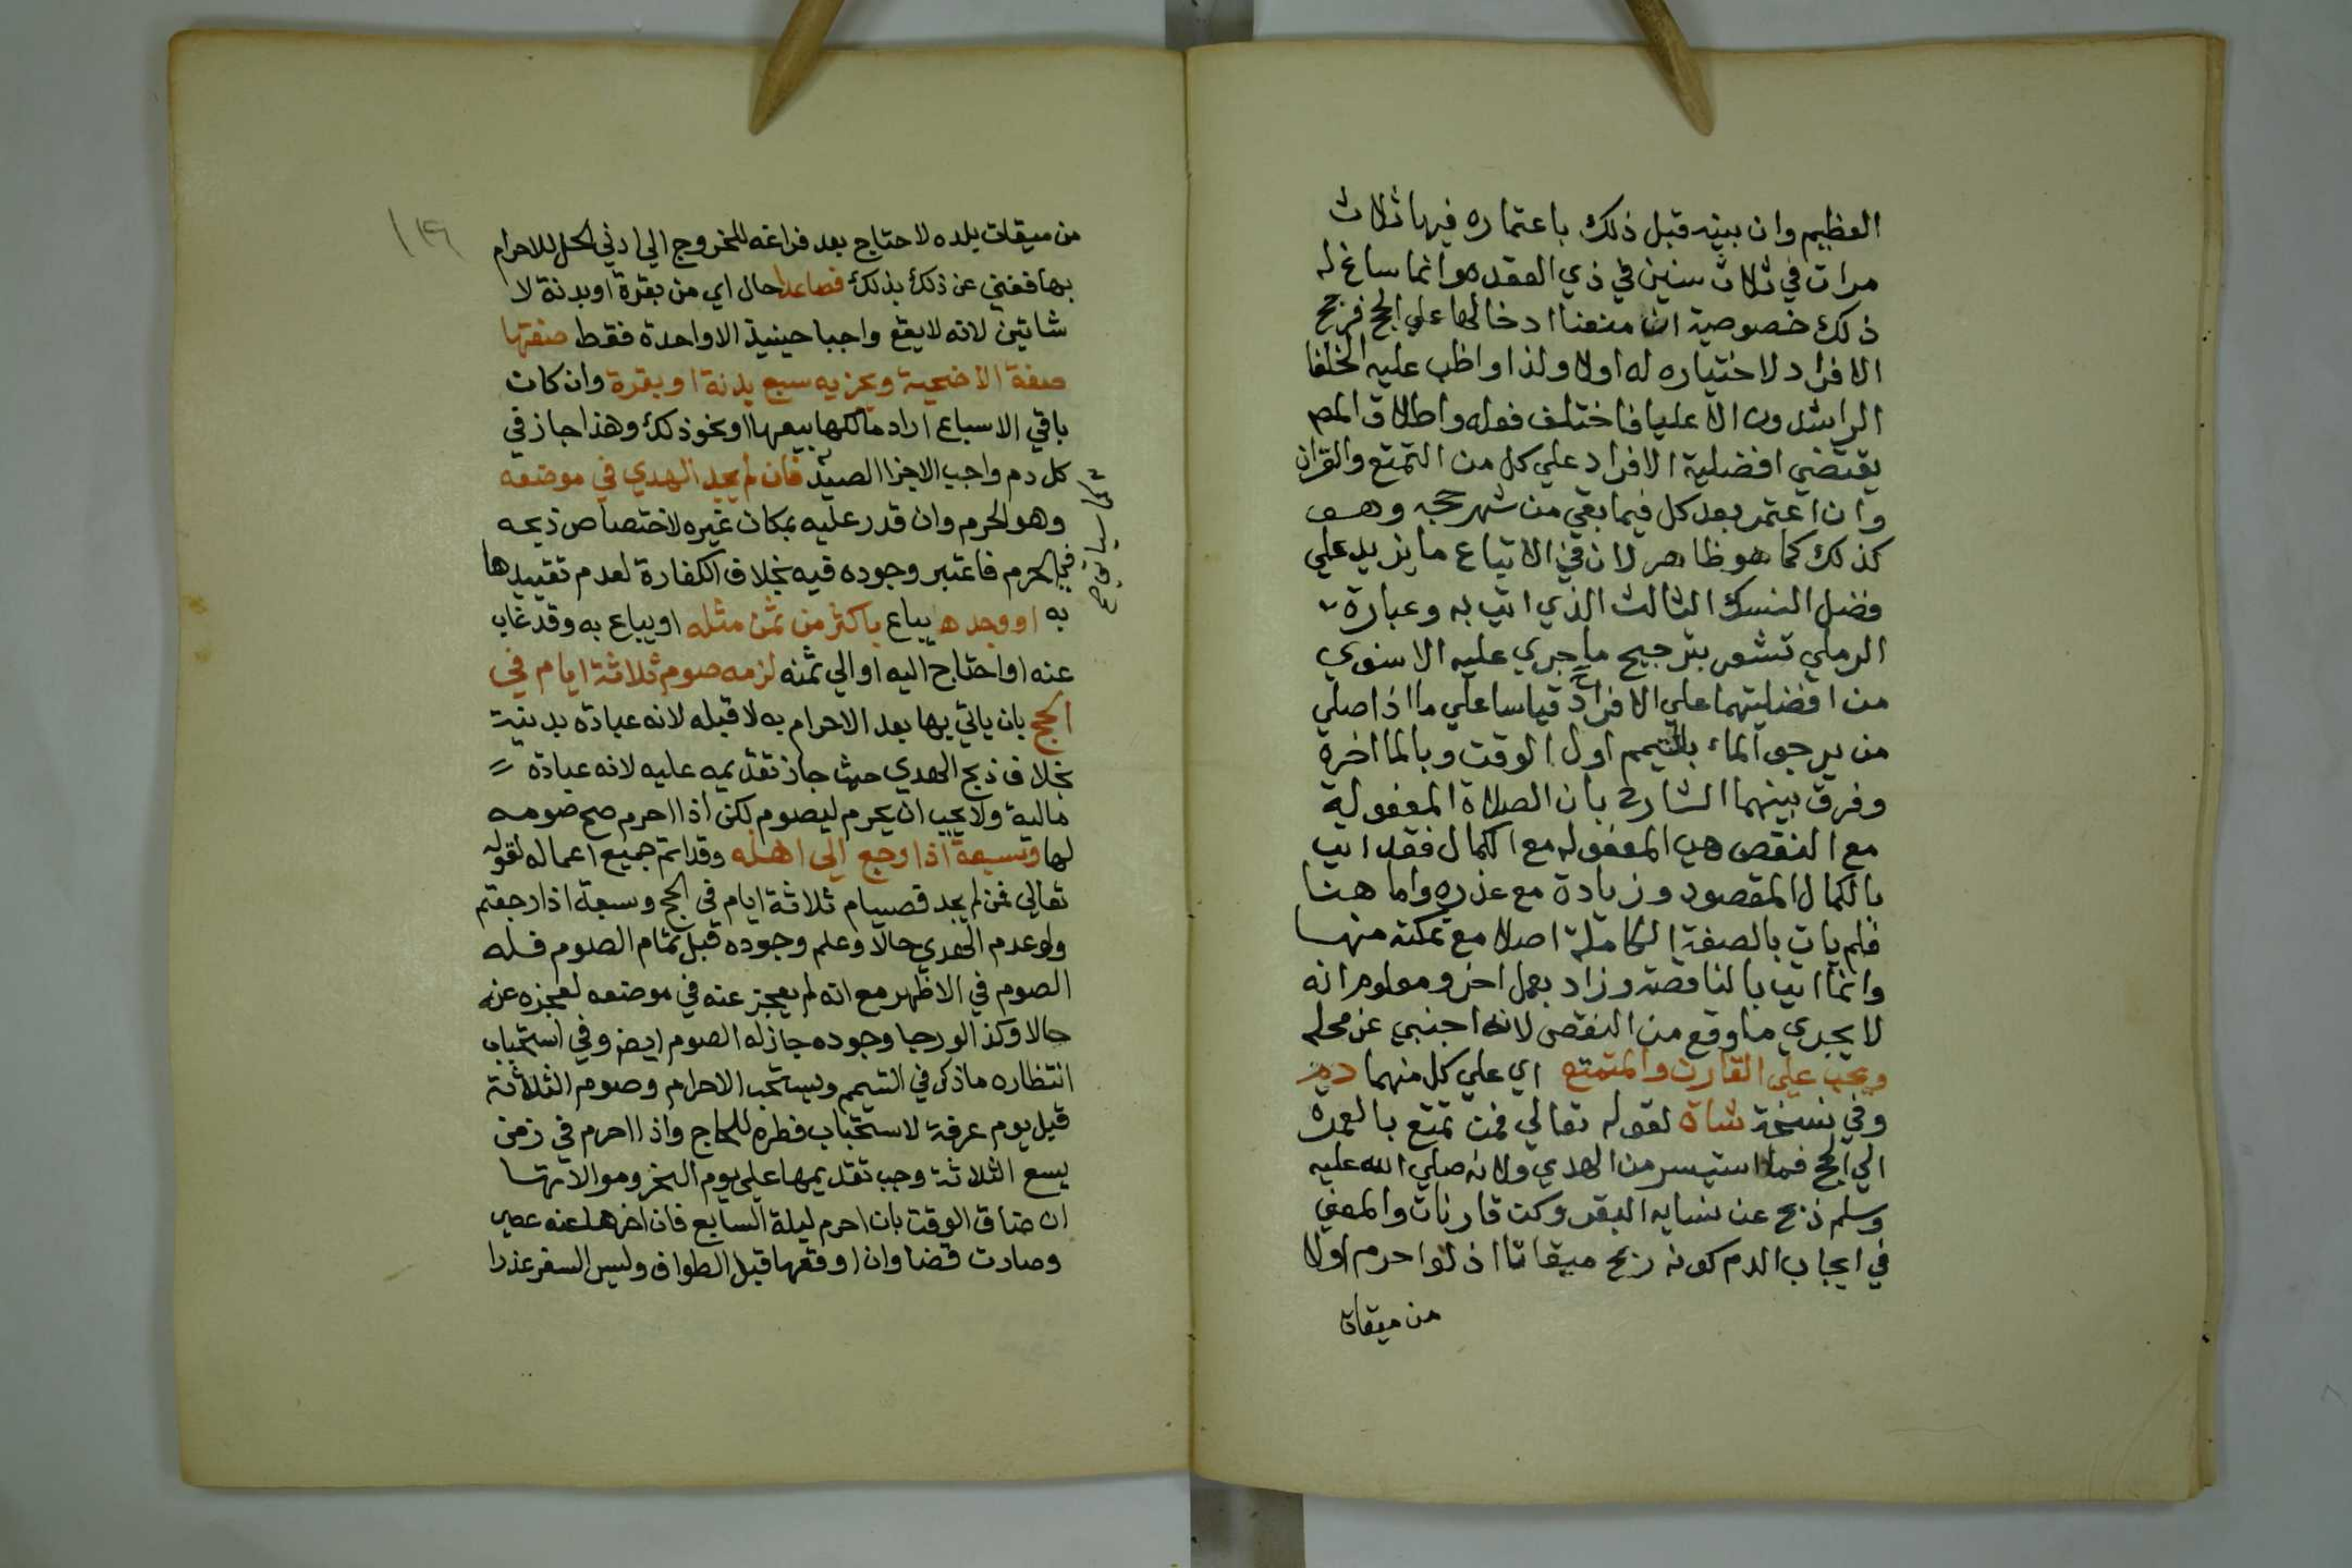 العظيم وان بينه قبل ذلك باعتماره فيها ثلاث
مرات في ثلاث سنين في ذي العقده وانما ساغ له
ذلك خصوصية ان منعنا ادخالها علي الحج فرجح
الافراد لاختياره له اولا ولذا واظب عليه الخلفا
الراشدون الا عليا فاختلف فعله واطلاق المص
يقتضي افضلية الافراد علي كل من التمتع والقران
وان اعتمر بعد كل فيما بقي من شهر حجه وهو
كذلك كما هو ظاهر لان في الاتباع ما يزيد علي
فضل النسك الثالث الذي اتي به وعبارة
الرملي تشعر بترجيح ما جري عليه الاسنوي
من افضليتهما علي الافراد قياسا علي ما اذا صلي
من يرجو الماء بالتيمم اول الوقت وبالما اخره
وفرق بينهما الشارح بان الصلاة المفعولة
مع النقص هي المفعوله مع الكمال فقد اتي
بالكمال المقصود وزيادة مع عذره واما هنا
فلم يات بالصفة الكاملة اصلا مع تمكنه منها
وانما اتي بالناقصة وزاد بعمل اخر ومعلوم انه
لا يجدي ما وقع من النقص لانه اجنبي عن محله
ويجب علي القارن والمتمتع اي علي كل منهما دم
وفي نسخة شاة لقوله تعالي فمن تمتع بالعمرة
الي الحج فما استيسر من الهدي ولانه صلي الله عليه
وسلم ذبح عن نسايه البقر وكن قارنات والمعني
في ايجاب الدم كونه ربح ميقاتا اذ لو احرم اولا
من ميقات
من ميقات بلده لاحتاج بعد فراغه للخروج الي ادني الحل للاحرام
بها فغني عن ذلك بذلك فصاعدا حال اي من بقرة او بدنة لا
شاتين لانه لا يقع واجبا حينيذ الا واحدة فقط صفتها
صفة الاضحية ويجزيه سبع بدنة او بقرة وان كان
باقي الاسباع اراد مالكها بيعها او نحو ذلك وهذا جاز في
كل دم واجب الا جزا الصيد فان لم يجد الهدي في موضعه
وهو الحرم وان قدر عليه بمكان غيره لاختصاص ذبحه
في الحرم فاعتبر وجوده فيه بخلاف الكفارة لعدم تقييدها
به او وجده يباع باكثر من ثمن مثله او يباع به وقد غاب
عنه او احتاج اليه او الي ثمنه لزمه صوم ثلاثة ايام في
الحج بان ياتي بها بعد الاحرام به لا قبله لانه عبادة بدنية
بخلاف ذبح الهدي حيث جاز تقديمه عليه لانه عبادة
مالية ولا يجب ان يحرم ليصوم لكن اذا احرم صح صومه
لها وسبعة اذا رجع الي اهله وقد اتم جميع اعماله لقوله
تعالي فمن لم يجد فصيام ثلاثة ايام في الحج وسبعة اذا رجعتم
ولو عدم الهدي حالا وعلم وجوده قبل تمام الصوم فله
الصوم في الاظهر مع انه لم يعجز عنه في موضعه لعجزه عنه
حالا وكذا لو رجا وجوده جاز له الصوم ايضا وفي استحباب
انتظاره ما ذكر في التيمم ويستحب الاحرام وصوم الثلاثة
قبل يوم عرفة لاستحباب فطره للحاج واذا احرم في زمن
يسع الثلاثة وجب تقديمها علي يوم النحر وموالاتها
ان ضاق الوقت بان احرم ليلة السابع فان اخرها عنه عصي
وصارت قضا وان اوقعها قبل الطواف وليس السفر عذرا